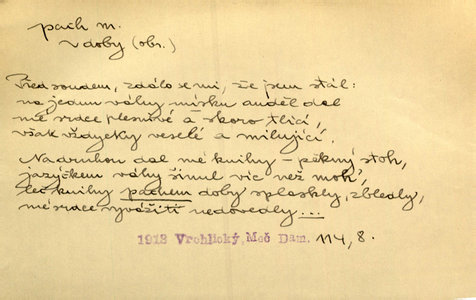 pach m.
v doby (obr.)
Před soudem, zdálo se mi, že jsem stál:
na jednu váhy misku anděl dal
mé srdce plesnivé a skoro tlící,
však vždycky veselé a milující.
Na druhou dal mé knihy – pěkný stoh,
jazýčkem váhy šinul víc než moh',
leč knihy pachem doby splaskly, zbledly,
mé srdce vyvážiti nedovedly...
1913 Vrchlický, Meč Dam. 114, 8.